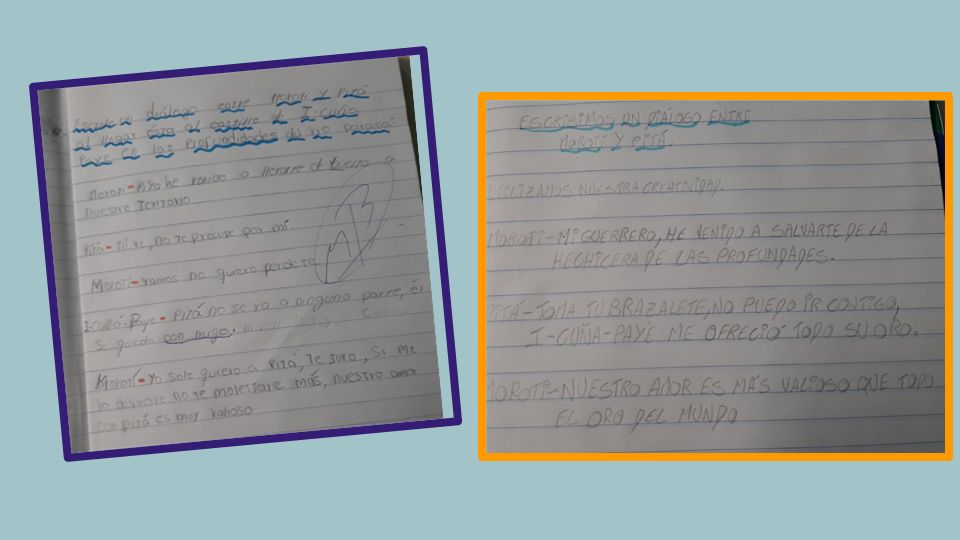 Escribe un diálogo entre Morotí y Pitá
al llegar ésta al castillo de I-cuña
Paye en las Profundidades del río Paraná:
Morotí-Pita he venido a llevarte de vuelta a
nuestro Territorio
Pitá-Tú ve, no te precupe por mí
Morotí-vamos no quiero perderte
I-cuñá-Paye-Pitá no se va a ninguna parte, él
se queda con migo.
Morotí-Yo solo quiero a Pitá, Te Juro, Si me
lo devuelve no te molestare más, nuestro amor
con pitá es muy valioso.
ESCRIBIMOS UN DIÁLOGO ENTRE
MOROTI Y PITÁ.
UTILIZAMOS NUESTRA CREATIVIDAD.
MOROTI-MI GUERRERO, HE VENIDO A SALVARTE DE LA
HECHICERA DE LAS PROFUNDADES.
PITÁ-TOMA TU BRAZALETE, NO PUEDO IR CONTIGO,
I-CUÑA-PAYE ME OFRECIÓ TODO SU ORO.
MOROTI-NUESTRO AMOR ES MÁS VALIOSO QUE TODO
EL ORO DEL MUNDO